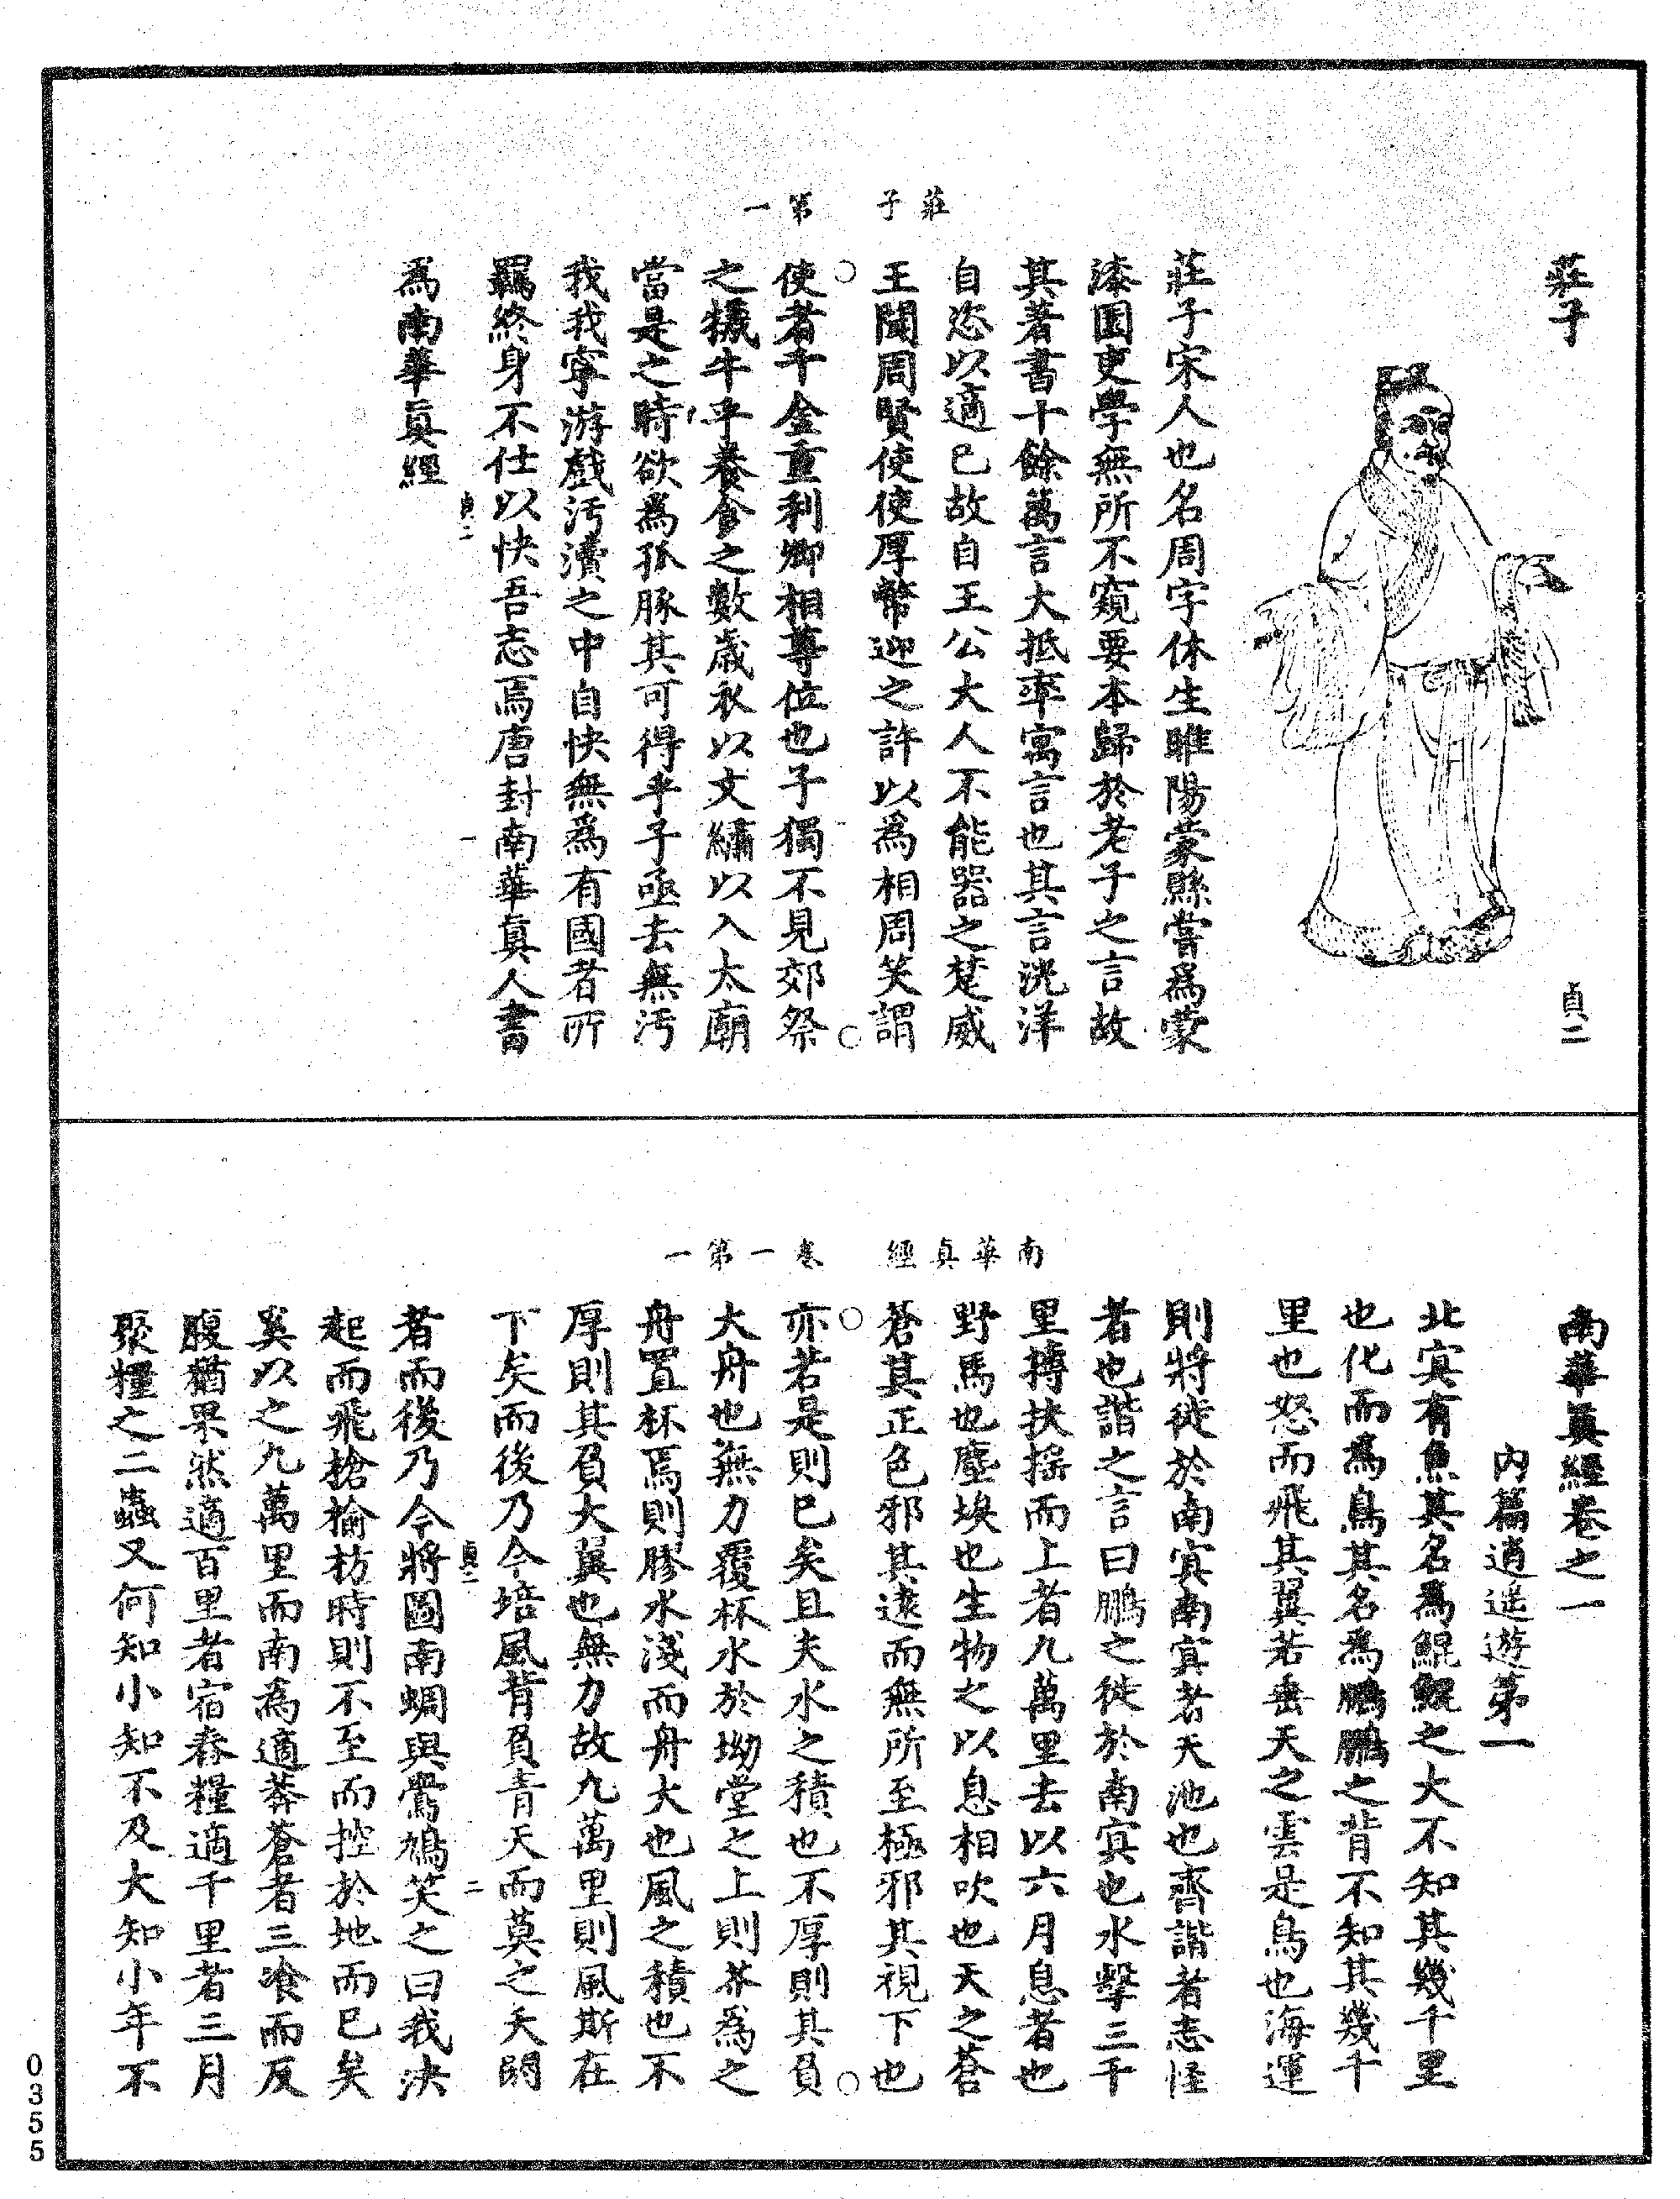 莊子
貞二
莊子 第一
莊子宋人也名周字休生睢陽蒙縣嘗爲蒙
漆園吏學無所不窺要本歸於老子之言故
其著書十餘萬言大抵率寓言也其言洸洋
自恣以適已故自王公大人不能器之楚威
王聞周賢使使厚幣迎之許以爲相周笑謂
使者千金重利卿相尊位也子獨不見郊祭
之犧牛乎養食之數歲衣以文繡以入太廟
當是之時欲爲孤豚其可得乎子亟去無汚
我我寧游戲汚瀆之中自快無爲有國者所
羈終身不仕以快吾志焉唐封南華眞人書
貞二 一
爲南華眞經
南華眞經 卷一 第一
南華眞經卷之一
內篇逍遥遊第一
北㝠有魚其名爲鯤鯤之大不知其幾千里
也化而爲鳥其名爲鵬鵬之背不知其幾千
里也怒而飛其翼若垂天之雲是鳥也海運
則將徙於南㝠南㝠者天池也齊諧者志怪
者也諧之言曰鵬之徙於南㝠也水擊三千
里摶扶搖而上者九萬里去以六月息者也
野馬也塵埃也生物之以息相吹也天之蒼
蒼其正色邪其遠而無所至極邪其視下也
亦若是則已矣且夫水之積也不厚則其負
大舟也無力覆杯水於坳堂之上則芥爲之
舟置杯焉則膠水淺而舟大也風之積也不
厚則其負大翼也無力故九萬里則風斯在
下矣而後乃今培風背負青天而莫之夭閼
貞二 二
者而後乃今將圖南蜩與鷽鳩笑之曰我決
起而飛槍榆枋時則不至而控於地而已矣
奚以之九萬里而南為適莽蒼者三飡而反
腹猶果然適百里者宿舂糧適千里者三月
聚糧之二蟲又何知小知不及大知小年不
0355